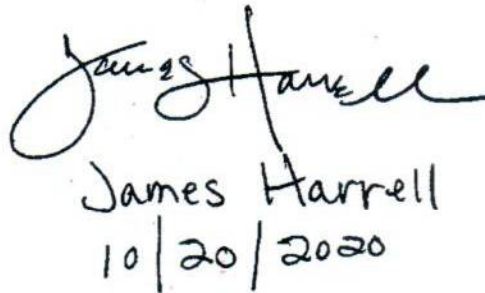 James Harrell
James Harrell
10/20/2020